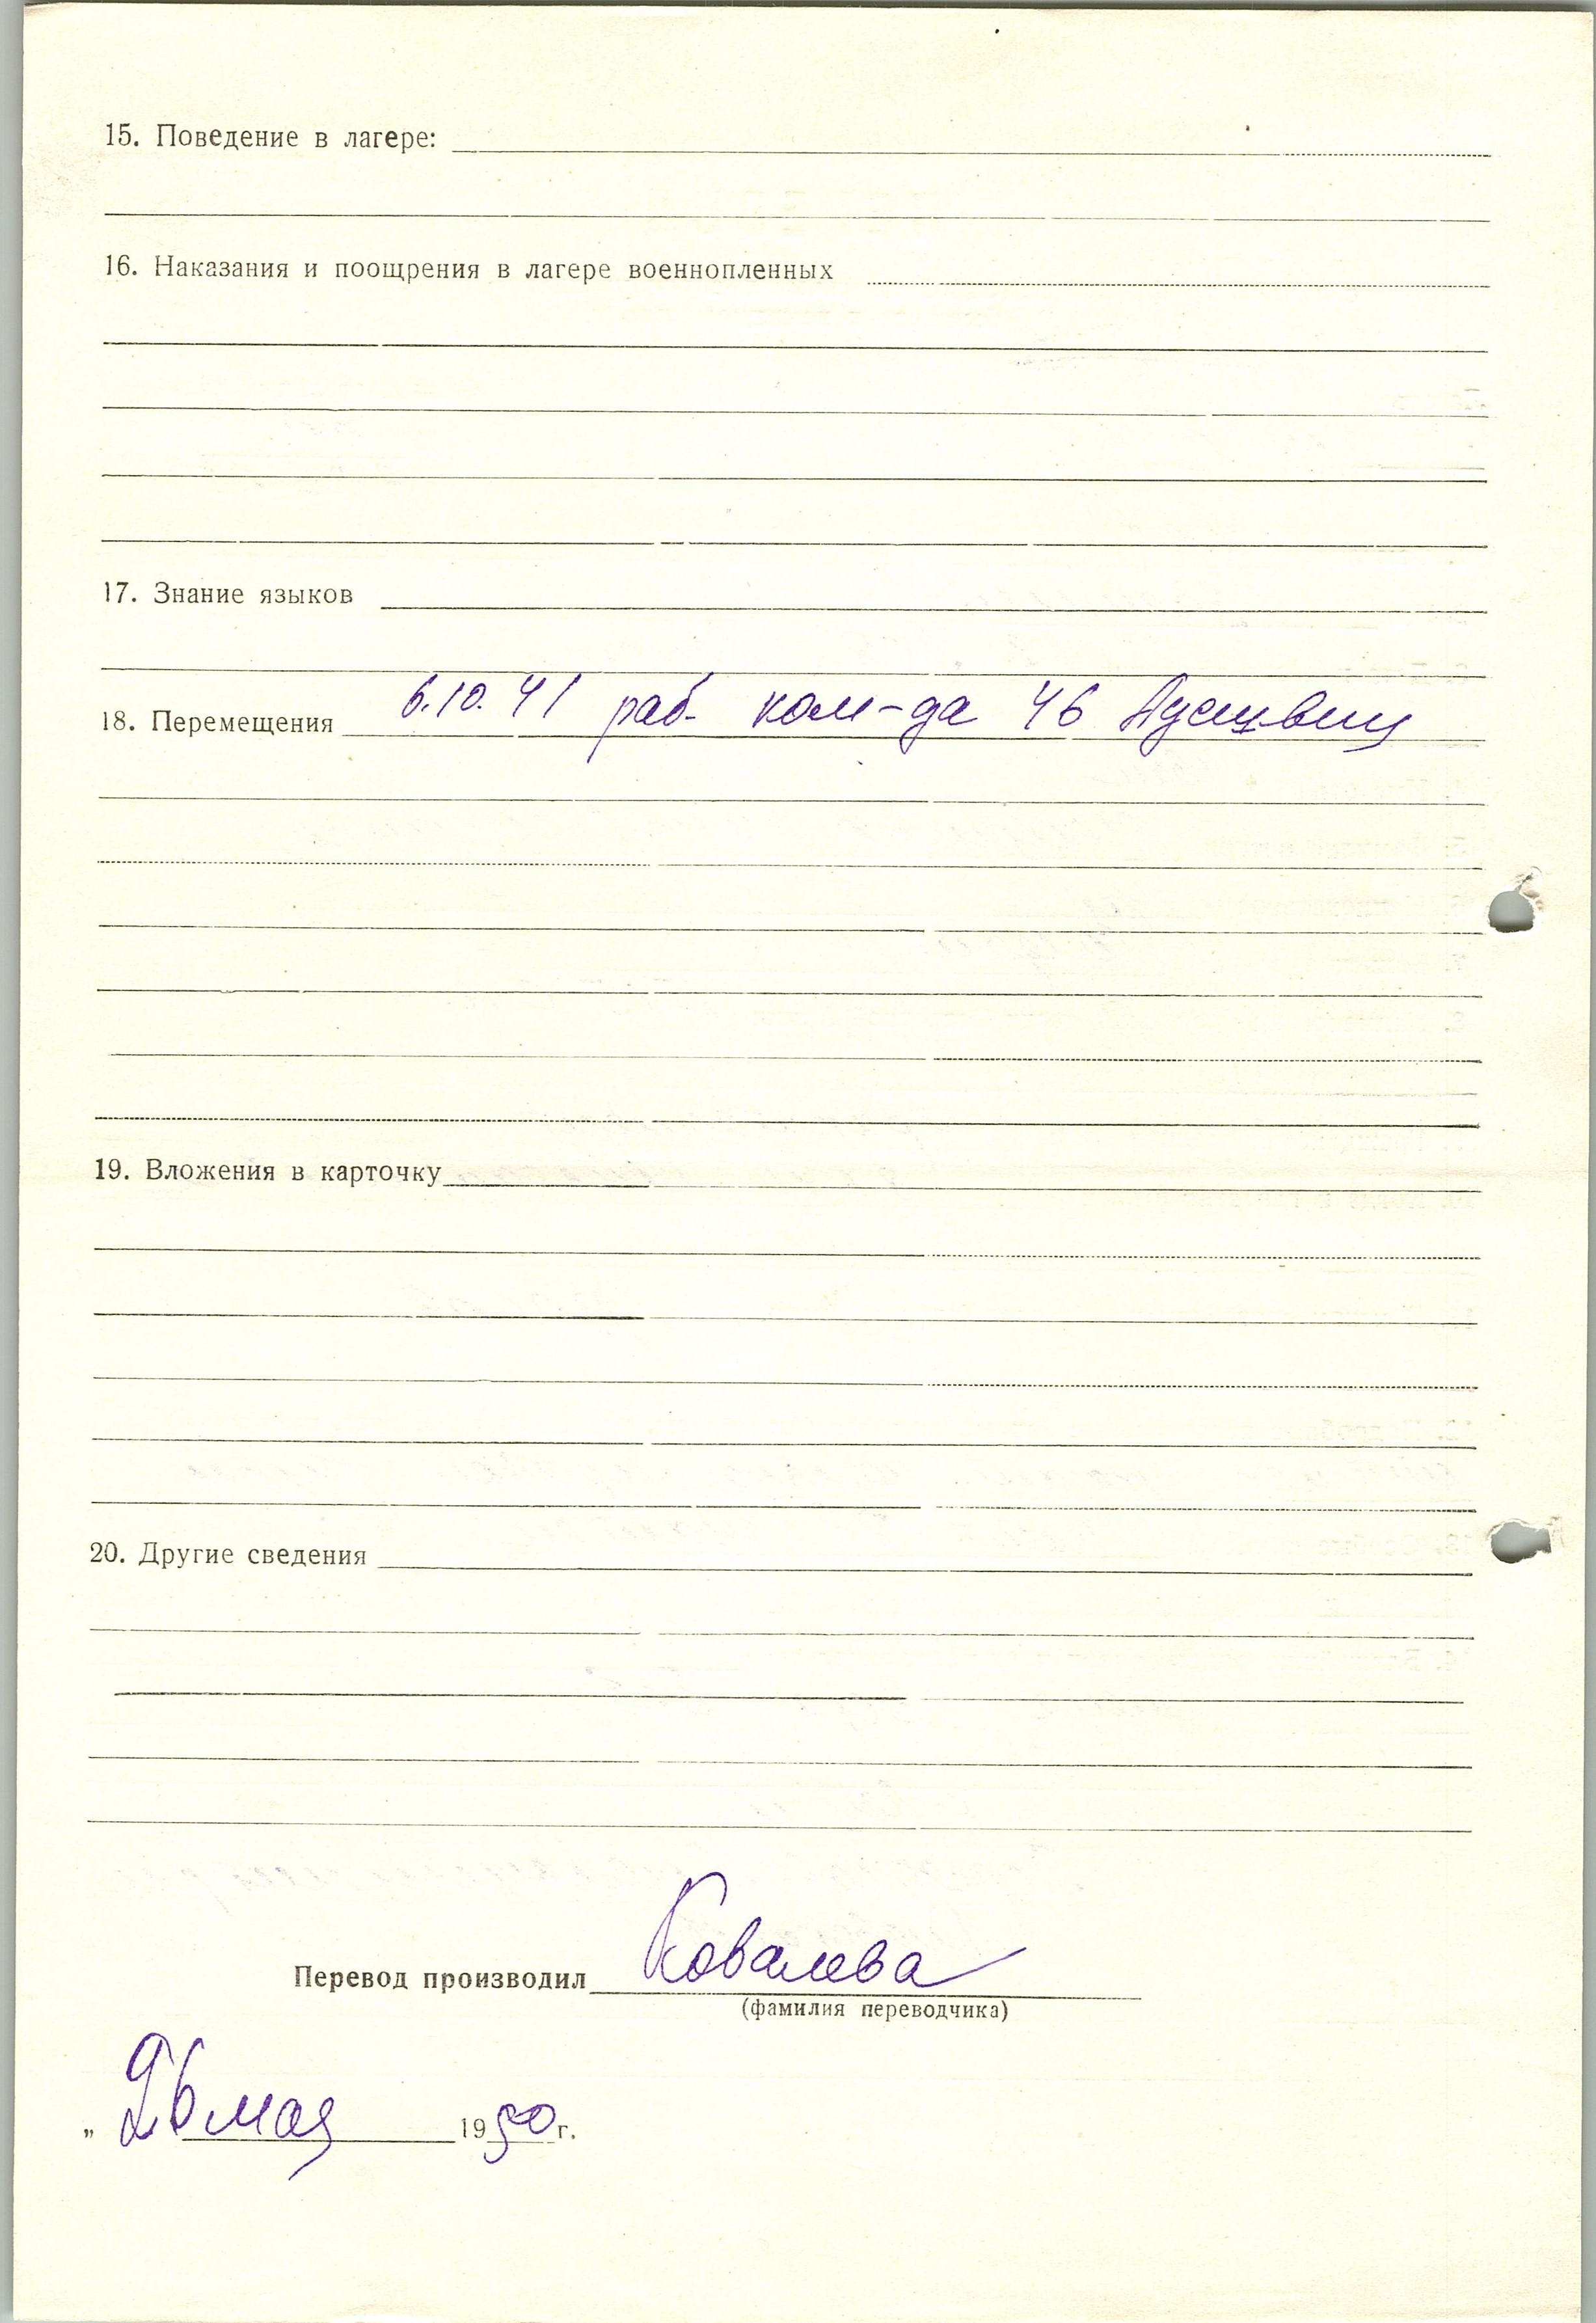 15. Поведение в лагере:
16. Наказания и поощрения в лагере военнопленных
17. Знание языков
18. Перемещения 6.10.41 раб. ком-да 46 Аусшвиц
19. Вложения в карточку
20. Другие сведения
Перевод производил Ковалева
(фамилия переводчика)
„ 26 мая 1950 г.